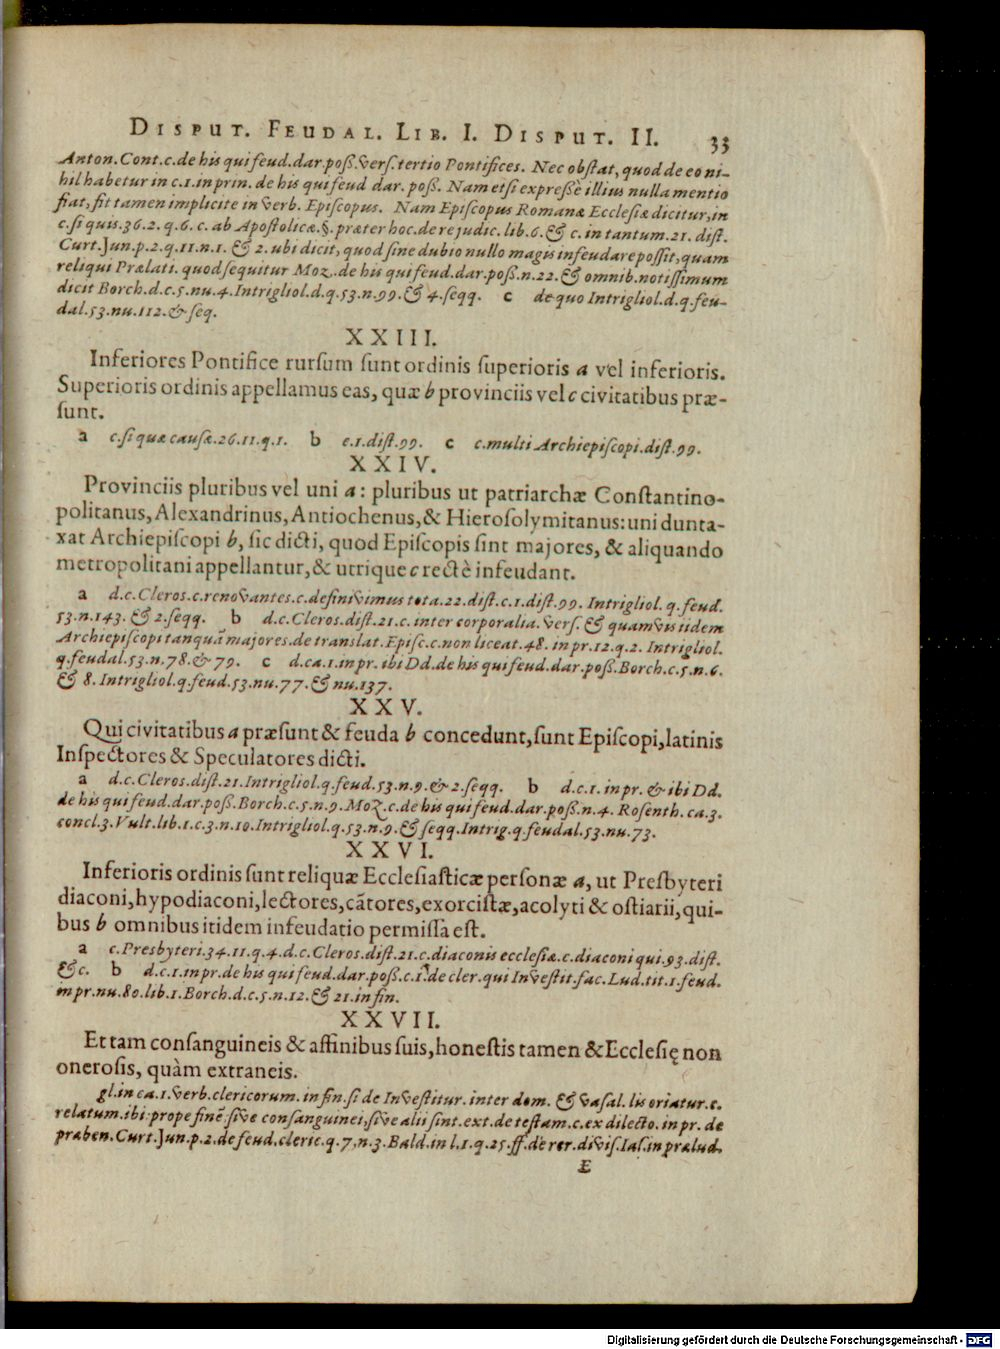 DISPUT. FEUDAL. LIB. I. DISPUT. II. 33
Anton. Cont. c. de his qui feud. dar. poß. vers. tertio Pontifices. Nec obstat, quod de eo ni-
hil habetur in c. 1. in prin. de his qui feud dar. poß. Nam etsi expreßè illius nulla mentio
fiat, fit tamen implicite in verb. Episcopus. Nam Episcopus Romanæ Ecclesiæ dicitur, in
c. si quis. 36. 2. q. 6. c. ab Apostolicæ. §. præter hoc. de rejudic. lib. 6. & c. in tantum. 21. dist.
Curt. Jun. p. 2. q. 11. n. 1. & 2. ubi dicit, quod sine dubio nullo magis infeudare possit, quam
reliqui Prælati. quod sequitur Moz. de his qui feud. dar. poß. n. 22. & omnib. notissimum
dicit Borch. d. c. 5. nu. 4. Intrigliol. d. q. 53. n. 99. & 4. seqq. c de quo Intrigliol. d. q. feu-
dal. 53. nu. 112. & seq.
XXIII.
Inferiores Pontifice rursum sunt ordinis superioris a vel inferioris.
Superioris ordinis appellamus eas, quæ b provinciis vel c civitatibus præ-
sunt.
a c. si quæ causæ. 26. 11. q. 1. b c. 1. dist. 99. c c. multi Archiepiscopi. dist. 99.
XXIV.
Provinciis pluribus vel uni a: pluribus ut patriarchæ Constantino-
politanus, Alexandrinus, Antiochenus, & Hierosolymitanus: uni dunta-
xat Archiepiscopi b, sic dicti, quod Episcopis sint majores, & aliquando
metropolitani appellantur, & utrique c rectè infeudant.
a d. c. Cleros. c. renovantes. c. definivimus tota. 22. dist. c. 1. dist. 99. Intrigliol. q. feud.
53. n. 143. & 2. seqq. b d. c. Cleros. dist. 21. c. inter corporalia. vers. & quamvis iidem
Archiepiscopi tanquã majores. de translat. Episc. c. non liceat. 48. in pr. 12. q. 2. Intrigliol.
q. feudal. 53. n. 78. & 79. c d. ca. 1. in pr. ibi Dd. de his qui feud. dar. poß. Borch. c. 5. n. 6.
& 8. Intrigliol. q. feud. 53. nu. 77. & nu. 137.
XXV.
Qui civitatibus a præsunt & feuda b concedunt, sunt Episcopi, latinis
Inspectores & Speculatores dicti.
a d. c. Cleros. dist. 21. Intrigliol. q. feud. 53. n. 9. & 2. seqq. b d. c. 1. in pr. & ibi Dd.
de his qui feud. dar. poß. Borch. c. 5. n. 9. Moz. c. de his qui feud. dar. poß. n. 4. Rosenth. ca. 3.
concl. 3. Vult. lib. 1. c. 3. n. 10. Intrigliol. q. 53. n. 9. & seqq. Intrig. q. feudal. 53. nu. 73.
XXVI.
Inferioris ordinis sunt reliquæ Ecclesiasticæ personæ a, ut Presbyteri
diaconi, hypodiaconi, lectores, cãtores, exorcistæ, acolyti & ostiarii, qui-
bus b omnibus itidem infeudatio permissa est.
a c. Presbyteri. 34. 11. q. 4. d. c. Cleros. dist. 21. c. diaconis ecclesiæ. c. diaconi qui. 93. dist.
&c. b d. c. 1. in pr. de his qui feud. dar. poß. c. 1. de cler. qui Investit. fac. Lud. tit. 1. feud.
in pr. nu. 80. lib. 1. Borch. d. c. 5. n. 12. & 21. in fin.
XXVII.
Et tam consanguineis & affinibus suis, honestis tamen & Ecclesię non
onerosis, quàm extraneis.
gl. in ca. 1. verb. clericorum. in fin. si de Investitur. inter dom. & vasal. lis oriatur. c.
relatum. ibi. prope finẽ. sive consanguinei, sive alii sint. ext. de testam. c. ex dilecto. in pr. de
præben. Curt. Jun. p. 2. de feud. cleric. q. 7. n. 3. Bald. in l. 1. q. 25. ff. de rer. divis. Ias. in prælud.
E
Digitalisierung gefördert durch die Deutsche Forschungsgemeinschaft - DFG